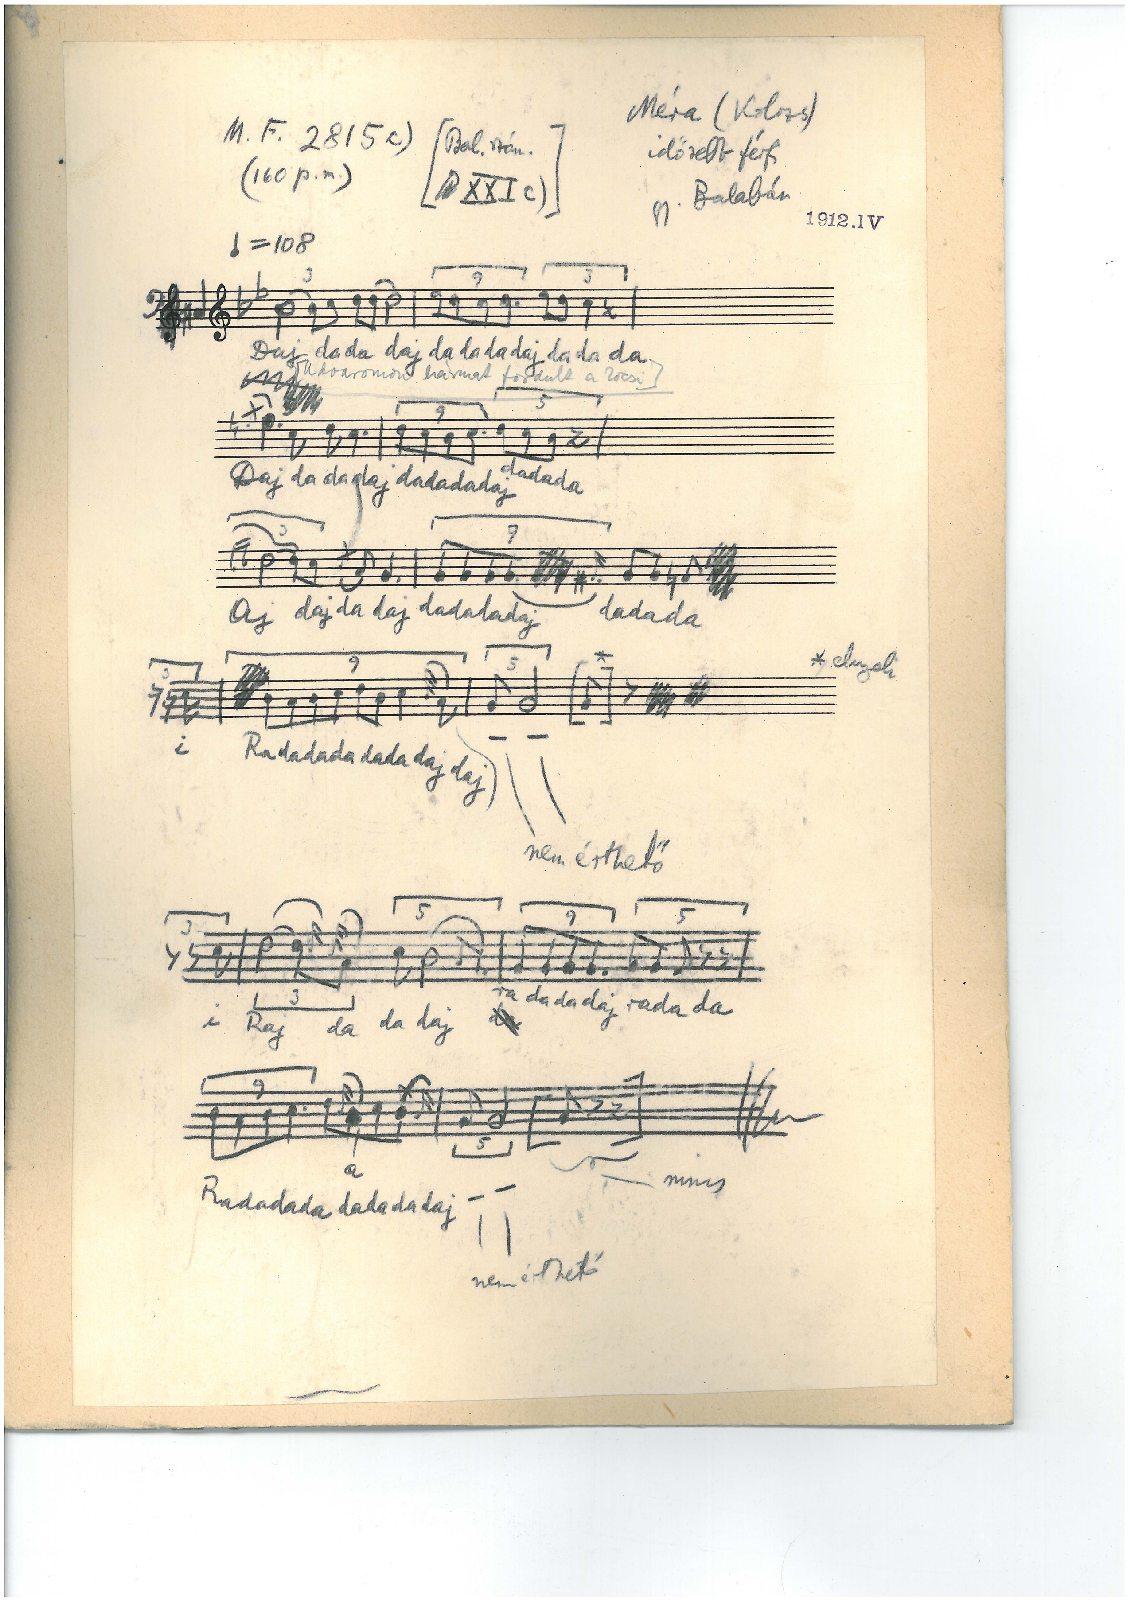 M. F. 2815 c)
(160 p.m.)
[Bal. szám.
XXI c)]
Méra (Kolozs)
idősebb férf.
gy. Balabán
1912.IV
♩ = 108
3 9 3
Daj dada daj dadadadaj dada da
hármat fordult a kocsi]
9 5
Daj da dadaj dadadadaj dadada
3 9
Aj dajda daj dadadadaj dadada
3 9 5 *
i Radadada dada daj daj
nem érthető
3 5 9 5
3
i Raj da da daj ra dadadaj rada da
9
5
a
nincs
Radadada dadadadaj
nem érthető